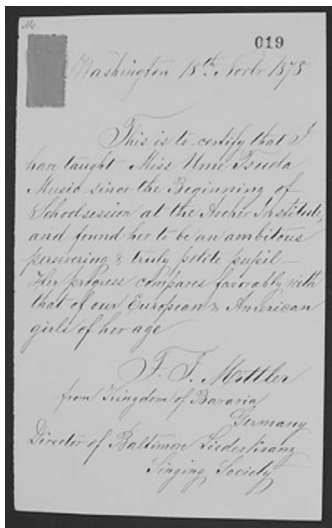 019
Washington 18th Novbr 1878
This is to certify that I
have taught Miss Ume Tsuda
Music since the Beginning of
Schoolsession at the Archer Institute,
and found her to be an ambitous
persevering & truly polite pupil—
Her progress compares favorably with
that of our European & American
girls of her age
F. J. Mottler
from Kingdom of Bavaria
Germany
Director of Baltimore Liederkranz
Singing Society